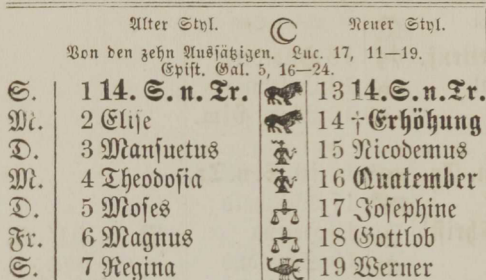 Alter Styl. Neuer Styl.
Von den zehn Aussätzigen. Luc. 17, 11—19.
Epist. Gal. 5, 16—24.
S. 1 14. S. n. Tr. 13 14. S. n. Tr.
M. 2 Elise 14 †Erhöhung
D. 3 Mansuetus 15 Nicodemus
M. 4 Theodosia 16 Quatember
D. 5 Moses 17 Josephine
Fr. 6 Magnus 18 Gottlob
S. 7 Regina 19 Werner